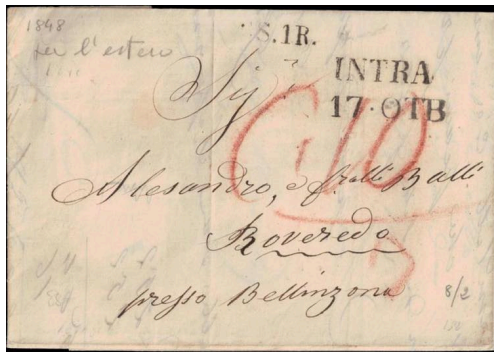 1848
per l'estero
S.1R.
INTRA
17·OTB
Sig.ri
10
Alesandro, e fratelli Balli
Roveredo
presso Bellinzona
3
8/2